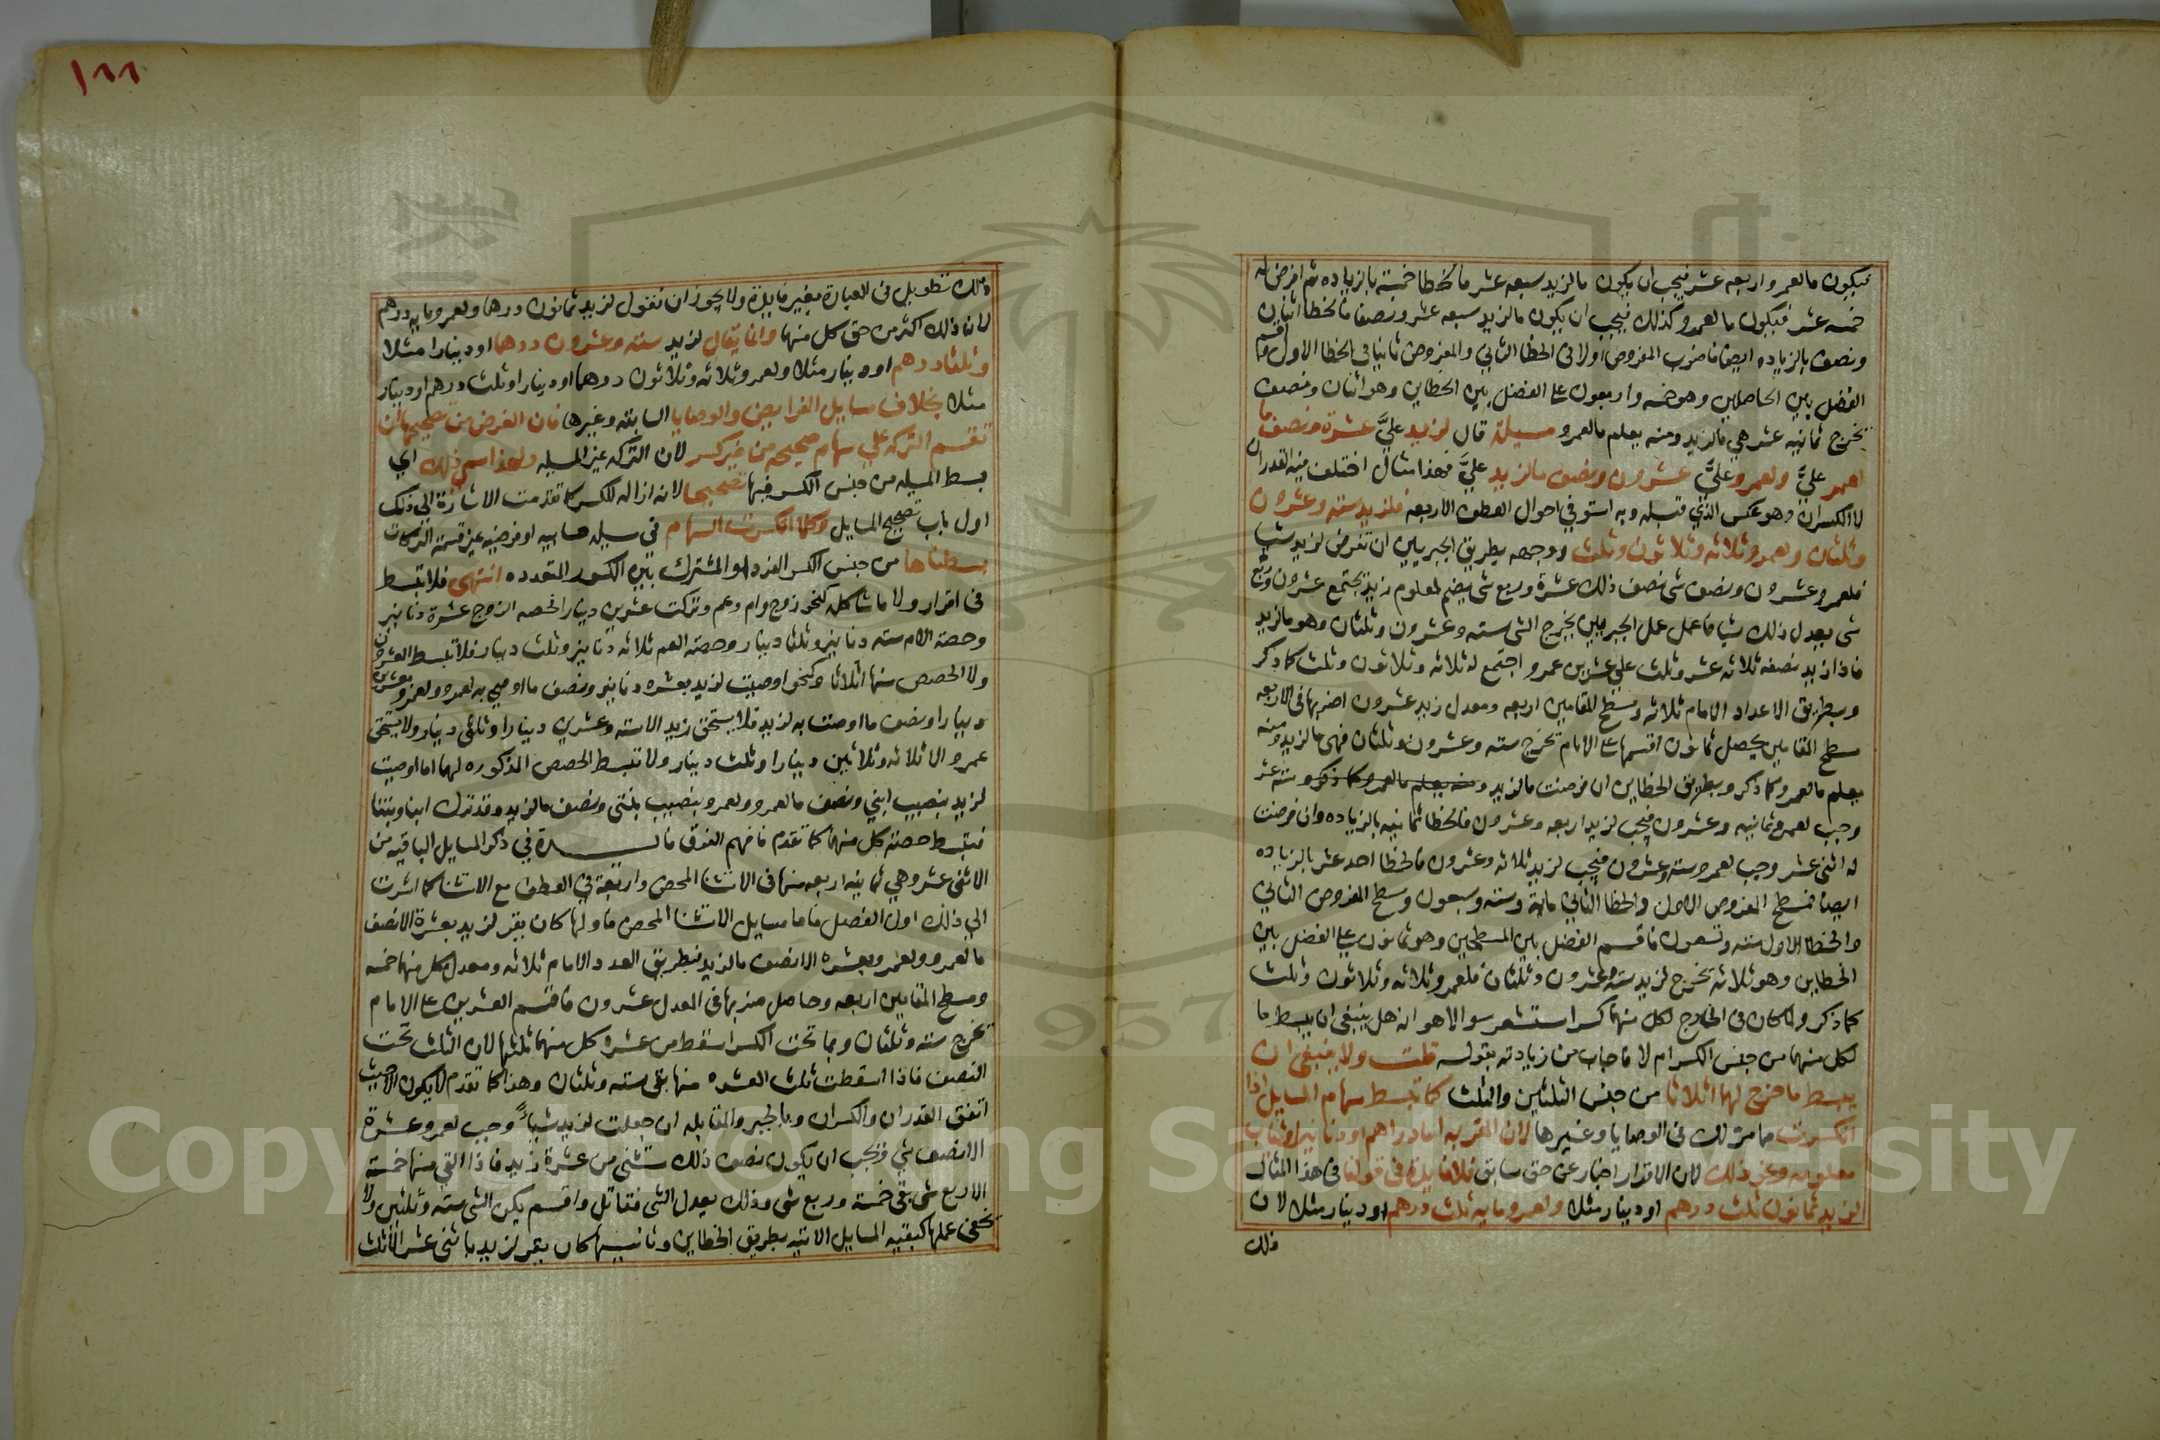 فيكون ما لعمرو اربعه عشر فيجب ان يكون ما لزيد سبعه عشر فالخطا خمسة بالزياده ثم افرض له
خمسه عشر فيكون ما لعمرو كذلك فيجب ان يكون ما لزيد سبعه عشر ونصفا فالخطا اثنان
ونصف بالزياده ايضا فاضرب المفروض اولا في الخطا الثاني والمفروض ثانيا في الخطا الاول واقسم
الفضل بين الحاصلين وهو خمسه واربعون على الفضل بين الخطاين وهو اثنان ونصف
يخرج ثمانيه عشر هي ما لزيد ومنه يعلم ما لعمرو مسيلة قال لزيد عليَّ عشرة ونصف ما
لعمرو عليَّ ولعمرو عليَّ عشرون ونصف ما لزيد عليَّ فهذا مثال اختلف فيه القدران
لا الكسران وهو عكس الذي قبله وبه استوفي احوال العطف الاربعه فلزيد سته وعشرون
وثلثان ولعمرو ثلاثه وثلاثون وثلث ووجهه بطريق الجبريين ان تفرض لزيد شيا
فلعمرو عشرون ونصف شي نصف ذلك عشرة وربع شي يضم لمعلوم زيد يجتمع عشرون وربع
شي يعدل ذلك شيا فاعمل عمل الجبريين يخرج الشي سته وعشرون وثلثان وهو ما لزيد
فاذا زيد نصفه ثلاثه عشر وثلث علي عشرين عمرو اجتمع له ثلاثه وثلاثون وثلث كما ذكر
وبطريق الاعداد الامام ثلاثه ومسطح المقامين اربعه ومعدل زيد عشرون اضربها في الاربعه
مسطح المقامين يحصل ثمانون اقسمها على الامام تخرج سته وعشرون وثلثان فهي ما لزيد ومنه
يعلم ما لعمرو كما ذكر وبطريق الخطاين ان فرضت ما لزيد ومنه يعلم ما لعمرو كما ذكر سته عشر
وجب لعمرو ثمانيه وعشرون فيجب لزيد اربعه وعشرون فالخطا ثمانيه بالزياده وان فرضت
له اثني عشر وجب لعمرو سته وعشرون فيجب لزيد ثلاثه وعشرون فالخطا احد عشر بالزياده
ايضا فمسطح المفروض الاول والخطا الثاني مايه وسته وسبعون ومسطح المفروض الثاني
والخطا الاول سته وتسعون فاقسم الفضل بين المسطحين وهو ثمانون على الفضل بين
الخطاين وهو ثلاثه تخرج لزيد سته وعشرون وثلثان فلعمرو ثلاثه وثلاثون وثلث
كما ذكر ولما كان في الخارج لكل منهما كسرا استشعر سوالا هو انه هل ينبغي ان يبسط ما
لكل منهما من جنس الكسر ام لا فاجاب من زيادته بقوله قلت ولا ينبغي ان
يبسط ما خرج لهما اثلاثا من جنس الثلثين والثلث كما تبسط سهام المسايل اذا
انكسرت مما مر لك في الوصايا وغيرها لان المقر به اما دراهم او دنانير او ثياب
معلومه ونحو ذلك لان الاقرار اخبار عن حق سابق فلا فايدة في قولنا في هذا المثال
لزيد ثمانون ثلث درهم او دينار مثلا ولعمرو مايه ثلث درهم او دينار مثلا لان
ذلك
١٦٦
ذلك تطويل في العبارة بغير فايدة ولا يجوز ان نقول لزيد ثمانون درهما ولعمرو مايه درهم
لان ذلك اكثر من حق كل منهما وانما يقال لزيد سته وعشرون درهما او دينارا مثلا
وثلثا درهم او دينار مثلا ولعمرو ثلاثه وثلاثون درهما او دينارا وثلث درهم او دينار
مثلا بخلاف مسايل الفرايض والوصايا السابقه وغيرها فان الغرض من تصحيحها ان
تقسم التركه علي سهام صحيحه من غير كسر لان التركه غير المسيله ولهذا سمي ذلك اي
بسط المسيله من جنس الكسر فيها تصحيحا لانه ازاله للكسر كما تقدمت الاشارة الي ذلك
اول باب تصحيح المسايل وكلما انكسرت السهام في مسيله حسابيه او فرضيه غير قسمة التركات
بسطناها من جنس الكسر المفرد او المشترك بين الكسور المتعدده انتهى فلا تبسط
في اقرار ولا ما شاكله كنحو زوج وام وعم وتركت عشرين دينارا فحصه الزوج عشرة دنانير
وحصة الام سته دنانير وثلثا دينار وحصة العم ثلاثه دنانير وثلث دينار فلا تبسط العشرون
ولا الحصص منها اثلاثا وكنحو اوصيت لزيد بعشره دنانير ونصف ما اوصي به لعمرو ولعمرو بعشرين
دينارا ونصف ما اوصيت به لزيد فلا يستحق زيد الا سته وعشرين دينارا وثلثي دينار ولا يستحق
عمرو الا ثلاثه وثلاثين دينارا وثلث دينار ولا تبسط الحصص المذكوره لهما اما اوصيت
لزيد بنصيب ابني ونصف ما لعمرو ولعمرو بنصيب بنتي ونصف ما لزيد وقد ترك ابنا وبنتا
فتبسط حصة كل منهما كما تقدم فافهم الفرق فايدة في ذكر المسايل الباقيه من
الاثني عشر وهي ثمانيه اربعه منها في الاستثنا المحض واربعة في العطف مع الاستثنا كما اشرت
الي ذلك اول الفصل فاما مسايل الاستثنا المحض فاولها كان يقر لزيد بعشرة الا نصف
ما لعمرو ولعمرو بعشره الا نصف ما لزيد فبطريق العدد الامام ثلاثه ومعدل كل منهما خمسه
ومسطح المقامين اربعه وحاصل ضربها في المعدل عشرون فاقسم العشرين على الامام
تخرج سته وثلثان وبما تحت الكسر اسقط من عشرة كل منهما ثلثها لان الثلث تحت
النصف فاذا اسقطت ثلث العشره منها بقي سته وثلثان وهذا كما تقدم لا يكون الا حيث
اتفق القدران والكسران وبالجبر والمقابله ان جعلت لزيد شيًا وجب لعمرو عشرة
الا نصف شي فيجب ان يكون نصف ذلك مستثني من عشرة زيد فاذا القي منها خمسة
الا ربع شي بقي خمسة وربع شي وذلك يعدل الشي فقابل واقسم يكن الشي سته وثلثين ولا
يخفى عملها كبقيه المسايل الاتيه بطريق الخطاين وثانيها كان يقر لزيد باثني عشر الا ثلث